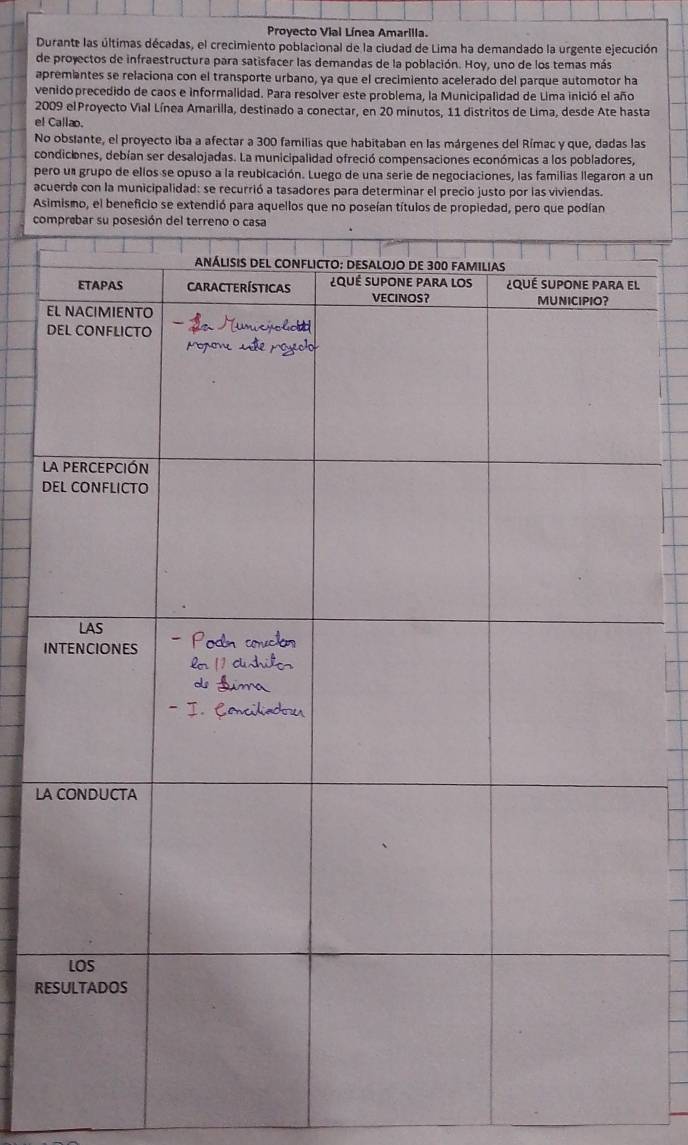 Proyecto Vial Línea Amarilla.
Durante las últimas décadas, el crecimiento poblacional de la ciudad de Lima ha demandado la urgente ejecución
de proyectos de infraestructura para satisfacer las demandas de la población. Hoy, uno de los temas más
apremiantes se relaciona con el transporte urbano, ya que el crecimiento acelerado del parque automotor ha
venido precedido de caos e informalidad. Para resolver este problema, la Municipalidad de Lima inició el año
2009 el Proyecto Vial Línea Amarilla, destinado a conectar, en 20 minutos, 11 distritos de Lima, desde Ate hasta
el Callao.
No obstante, el proyecto iba a afectar a 300 familias que habitaban en las márgenes del Rímac y que, dadas las
condiciones, debían ser desalojadas. La municipalidad ofreció compensaciones económicas a los pobladores,
pero un grupo de ellos se opuso a la reubicación. Luego de una serie de negociaciones, las familias llegaron a un
acuerdo con la municipalidad: se recurrió a tasadores para determinar el precio justo por las viviendas.
Asimismo, el beneficio se extendió para aquellos que no poseían títulos de propiedad, pero que podían
comprobar su posesión del terreno o casa
ANÁLISIS DEL CONFLICTO: DESALOJO DE 300 FAMILIAS
ETAPAS CARACTERÍSTICAS ¿QUÉ SUPONE PARA LOS VECINOS? ¿QUÉ SUPONE PARA EL MUNICIPIO?
EL NACIMIENTO
DEL CONFLICTO
- La Municipalidad
propone este proyecto
LA PERCEPCIÓN
DEL CONFLICTO
LAS
INTENCIONES
- Poder conectar
los 11 distritos
de Lima
- I. Conciliadores
LA CONDUCTA
LOS
RESULTADOS